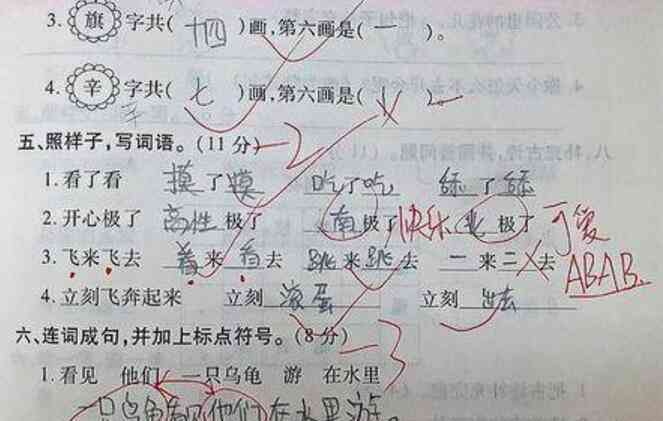 3. 旗 字共( 十四 )画,第六画是( 一 )。
4. 辛 字共( 七 )画,第六画是( )
五、照样子,写词语。(11分) -2
1.看了看 摸了摸 吃了吃 舔了舔
2.开心极了 高性极了 南极了 快乐 北极了 可爱
3.飞来飞去 看来看去 跳来跳去 一来二去 ABAB.
4.立刻飞奔起来 立刻滚蛋 立刻出去
六、连词成句,并加上标点符号。(8分) -3
1.看见 他们 一只乌龟 游 在水里
一只乌龟看见他们在水里游。